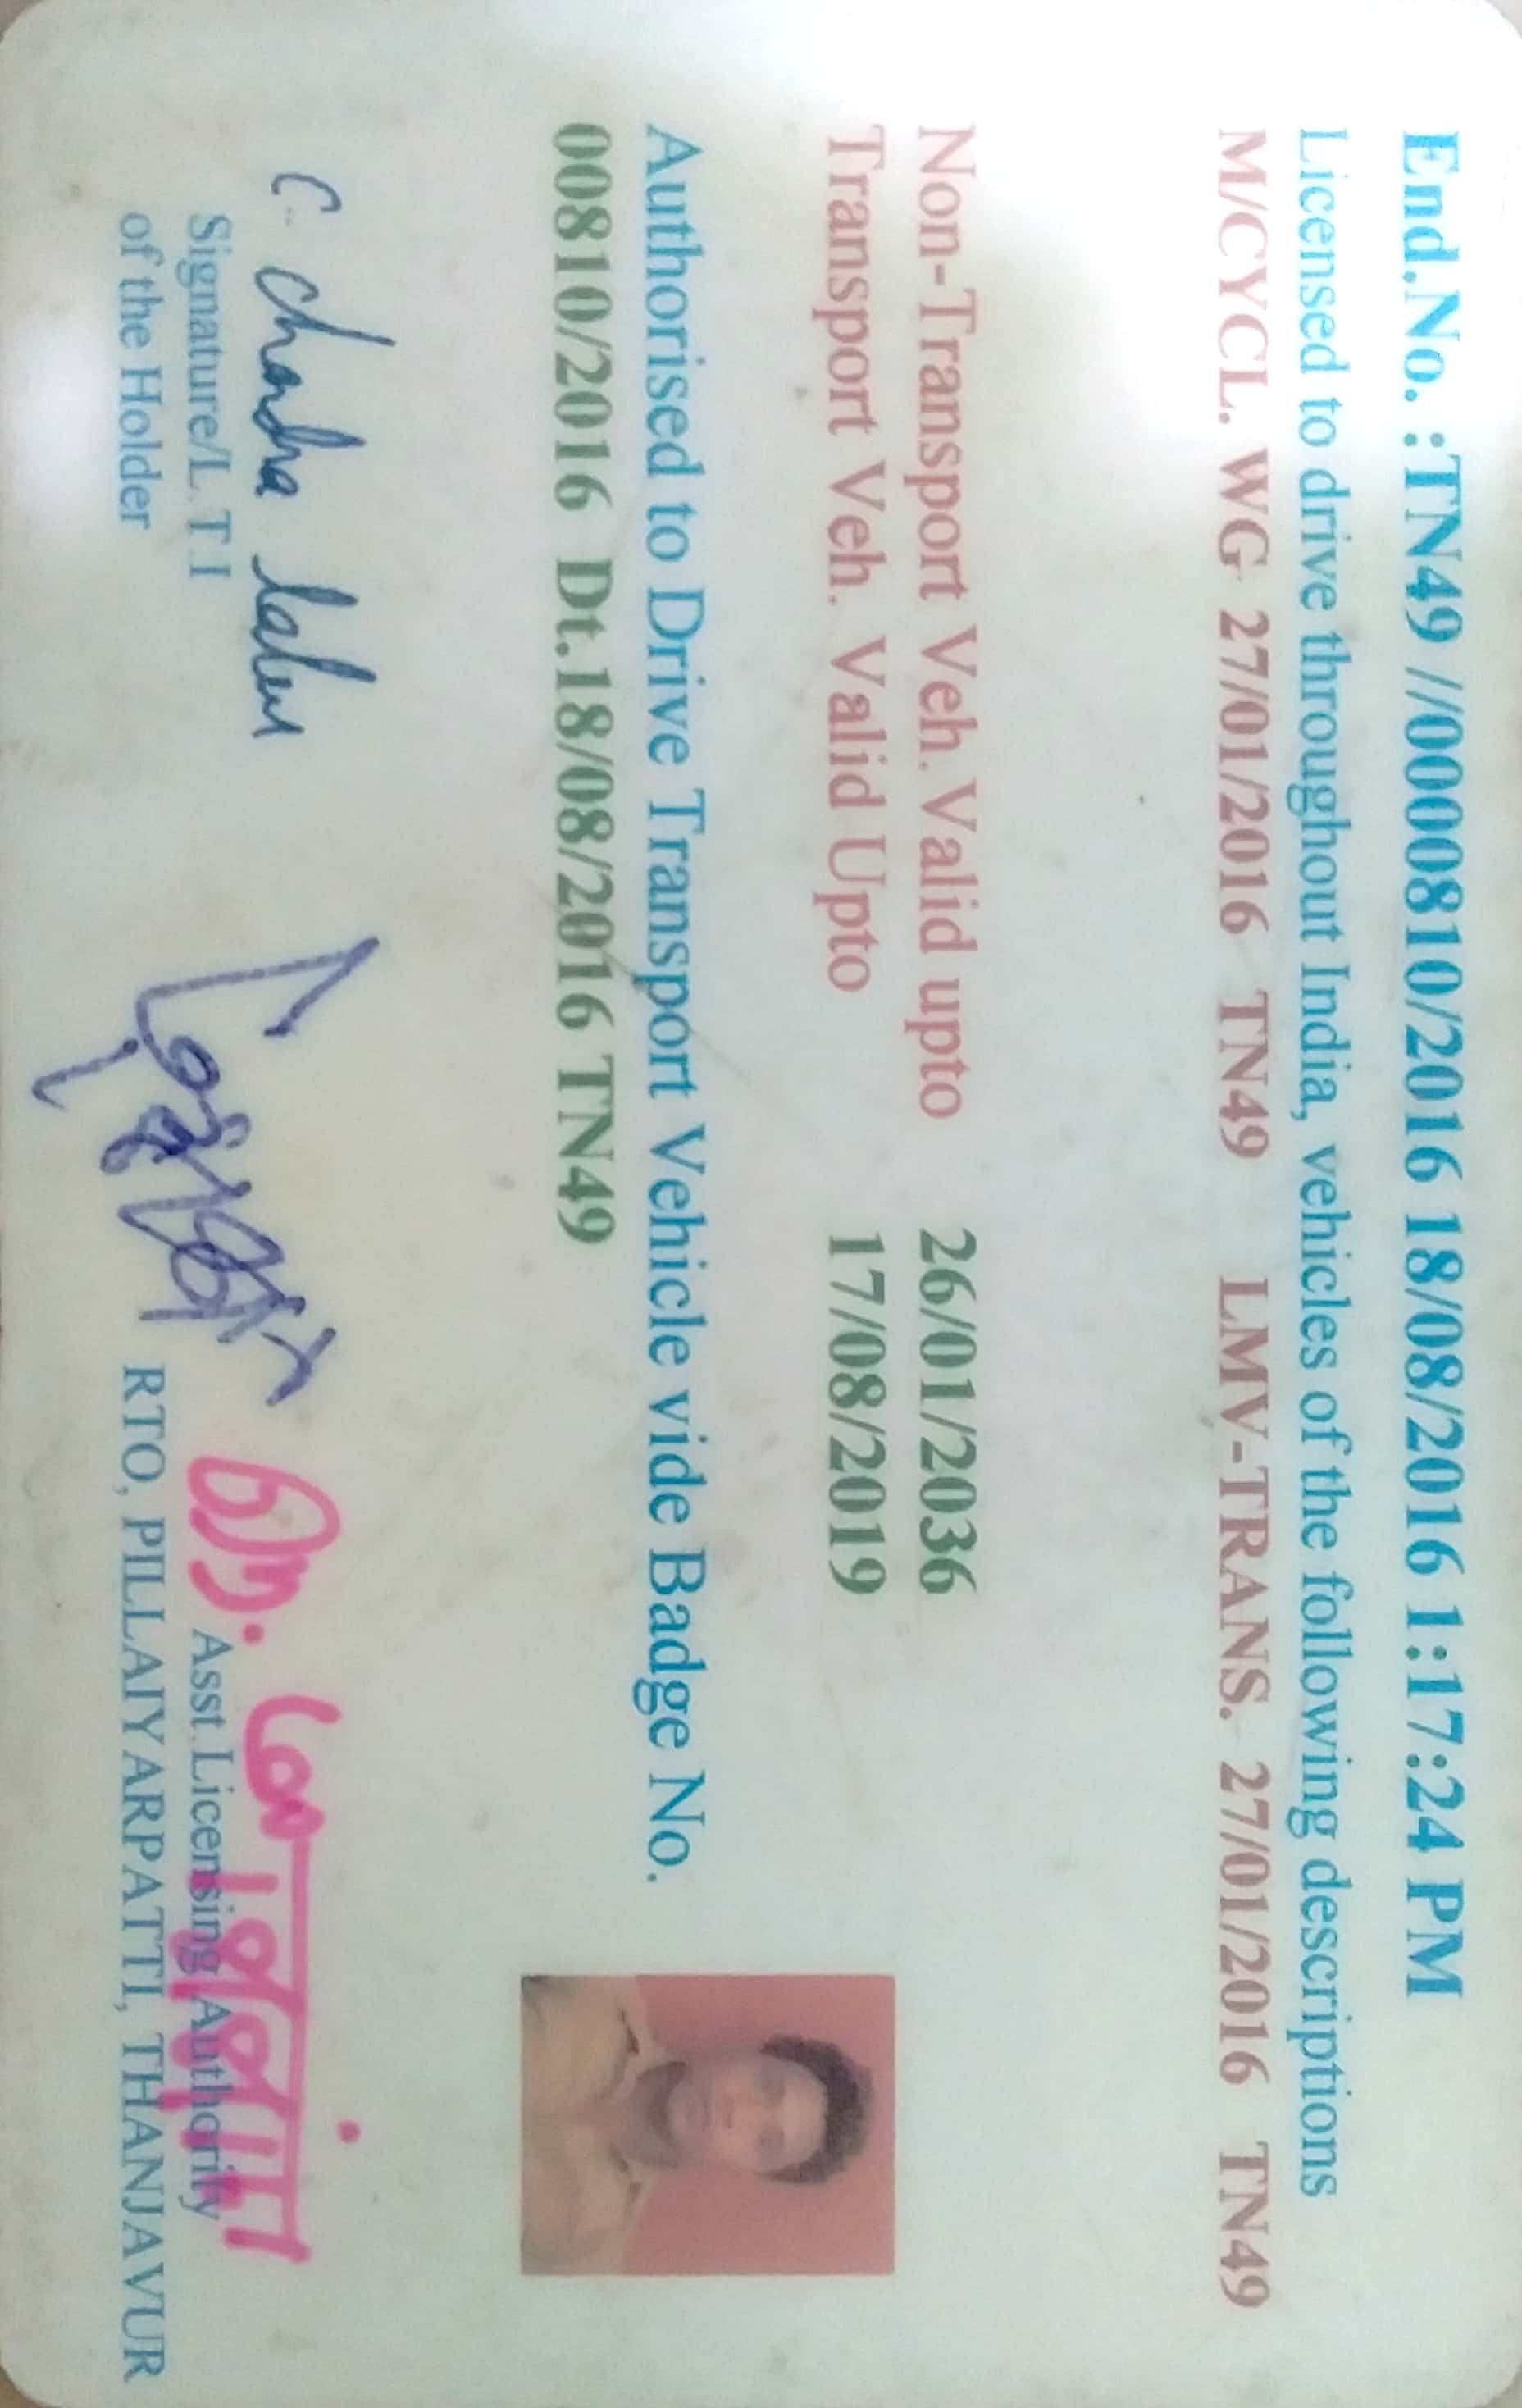 End.No. :TN49 //0000810/2016 18/08/2016 1:17:24 PM
Licensed to drive throughout India, vehicles of the following descriptions
M/CYCL. WG 27/01/2016 TN49 LMV-TRANS. 27/01/2016 TN49
Non-Transport Veh. Valid upto 26/01/2036
Transport Veh. Valid Upto 17/08/2019
Authorised to Drive Transport Vehicle vide Badge No.
00810/2016 Dt.18/08/2016 TN49
C. Chandra
Signature/L.T.I
of the Holder
Asst.Licensing Authority
RTO, PILLAIYARPATTI, THANJAVUR